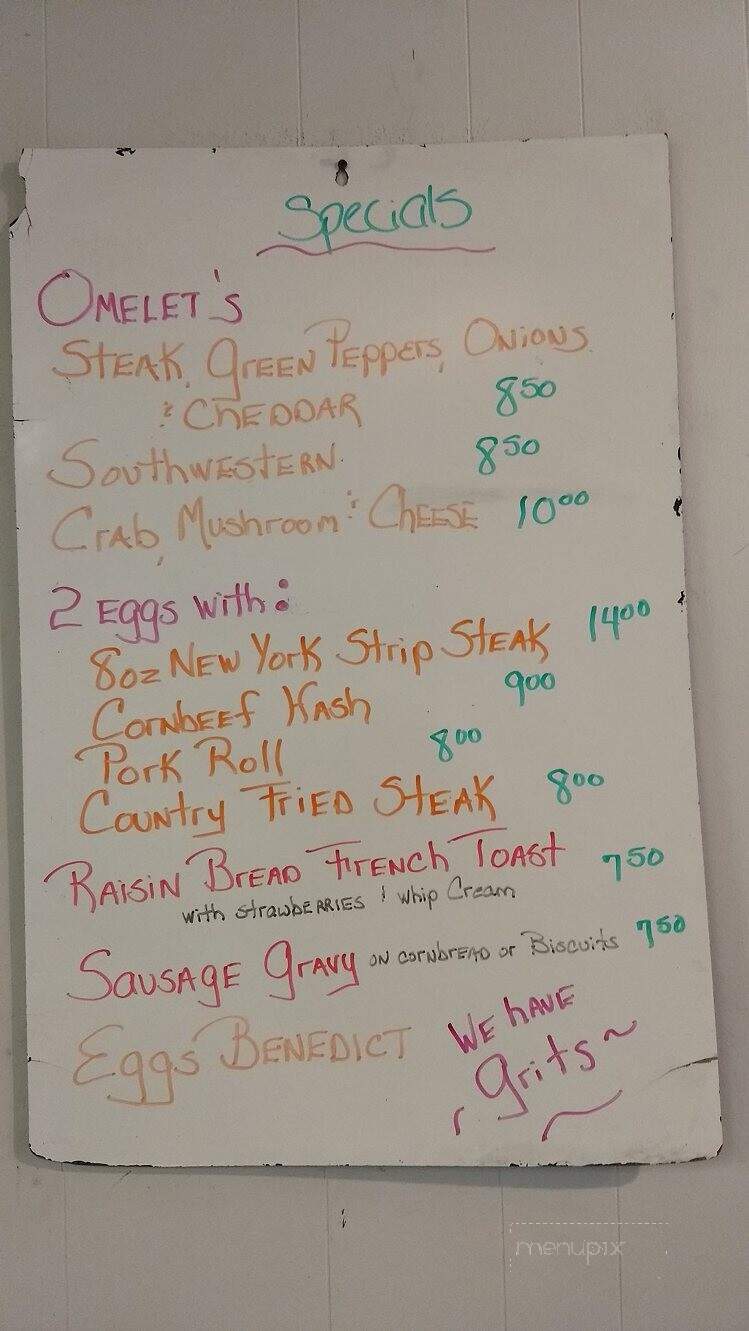 Specials
OMELET'S
STEAK, GREEN PEPPERS, ONIONS
& CHEDDAR 8.50
SOUTHWESTERN 8.50
CRAB, MUSHROOM & CHEESE 10.00
2 EGGS WITH:
8oz NEW YORK STRIP STEAK 14.00
CORNBEEF HASH 9.00
PORK ROLL 8.00
COUNTRY FRIED STEAK 8.00
RAISIN BREAD FRENCH TOAST 7.50
with STRAWBERRIES & whip Cream
SAUSAGE GRAVY ON CORNBREAD or Biscuits 7.50
EGGS BENEDICT
WE HAVE
Grits
menupix